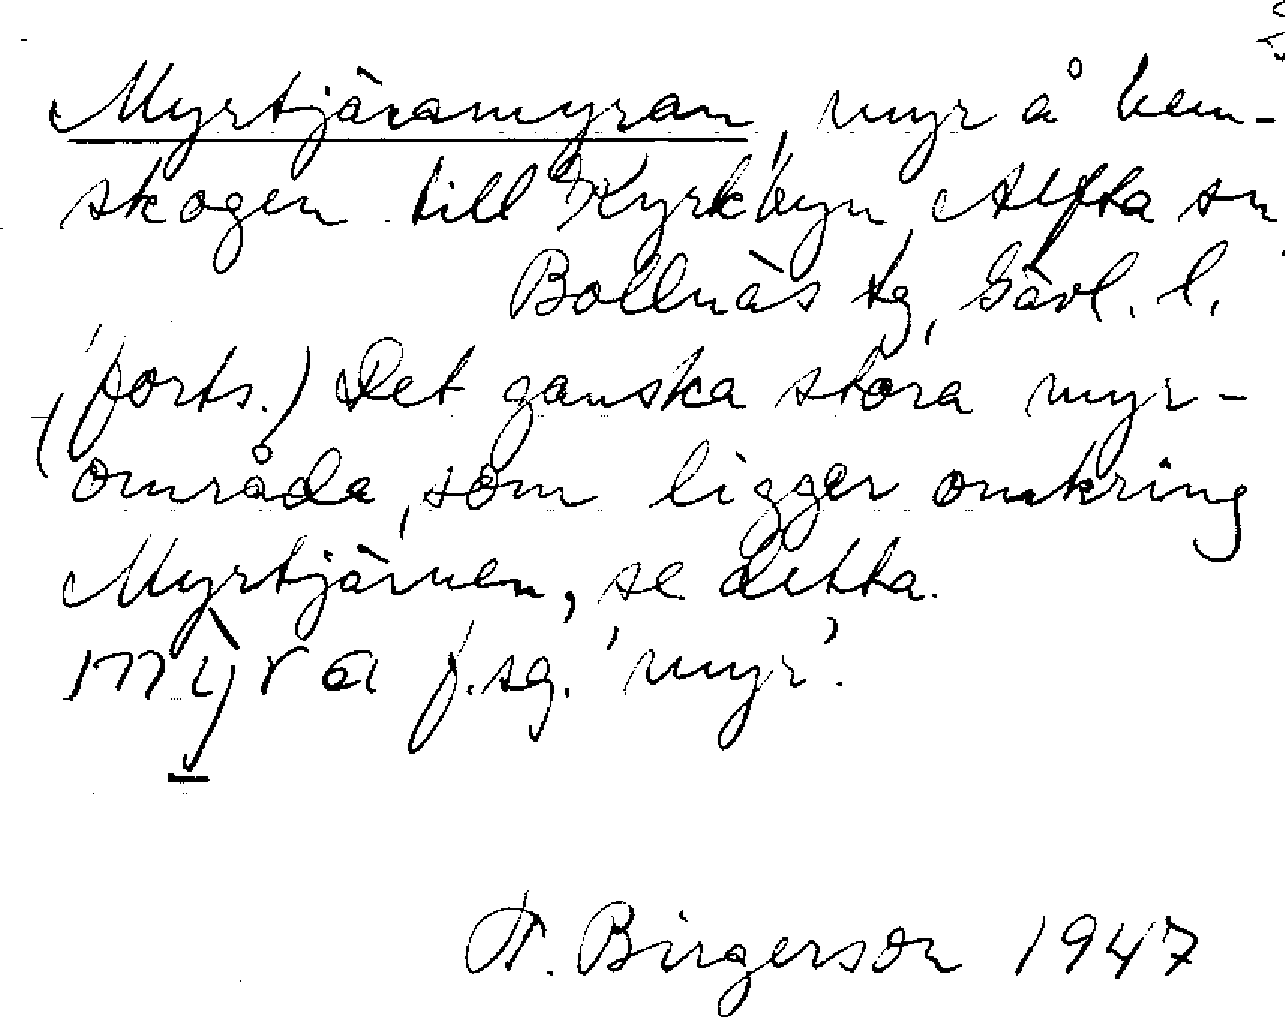 Myrtjäramyran, myr å hem-
skogen till Kyrkbyn, Alfta sn
Bollnäs tg, Gävl. l.
(forts.) Det ganska stora myr-
område, som ligger omkring
Myrtjärnen, se detta.
myra f.sg. 'myr'.
Birgerson 1947